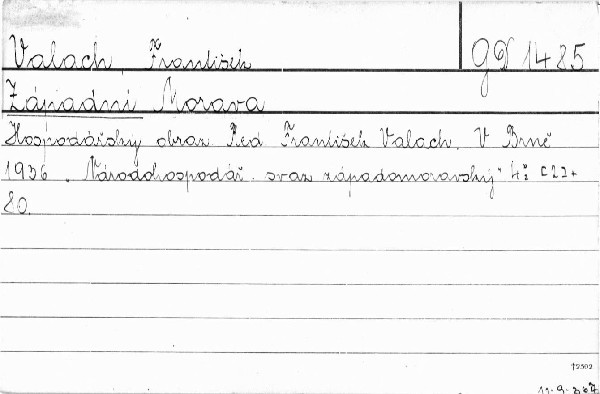 Valach František
GD 1485
Západní Morava
Hospodářský obraz. Red. František Valach. V Brně
1936. „Národohospodář. svaz západomoravský" 4° [2]+
80.
12502